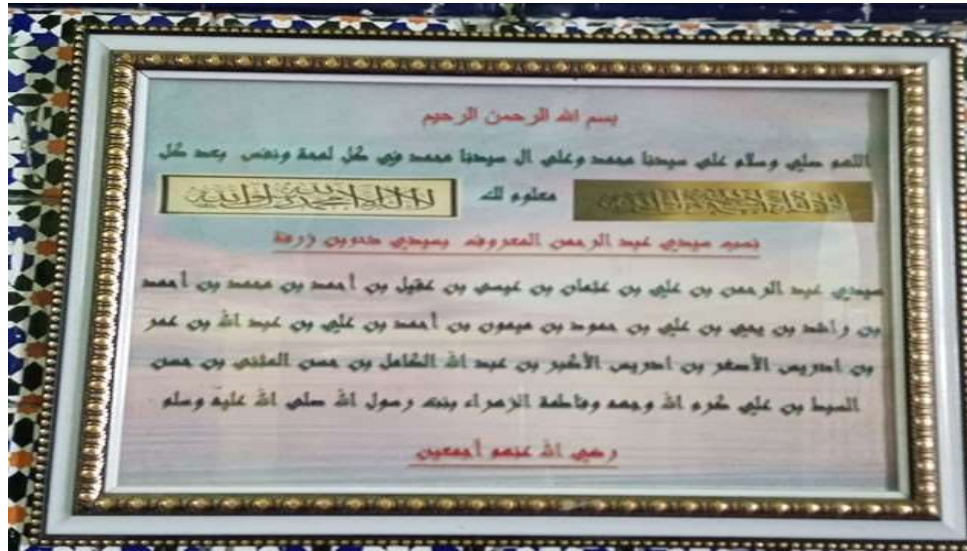 بسم الله الرحمن الرحيم
اللهم صلي وسلام على سيدنا محمد وعلى ال سيدنا محمد في كل لمحة ونفس بعدد كل
معلوم لك
نسب سيدي عبد الرحمن المعروف بسيدي دحو بن زرفة
سيدي عبد الرحمن بن علي بن عثمان بن عيسى بن عقيل بن أحمد بن محمد بن أحمد
بن راشد بن يحي بن علي بن حمود بن ميمون بن أحمد بن علي بن عبد الله بن عمر
بن ادريس الأصغر بن ادريس الأكبر بن عبد الله الكامل بن حسن المثنى بن حسن
السبط بن علي كرم الله وجهه وفاطمة الزهراء بنت رسول الله صلى الله عليه وسلم
رضي الله عنهم أجمعين